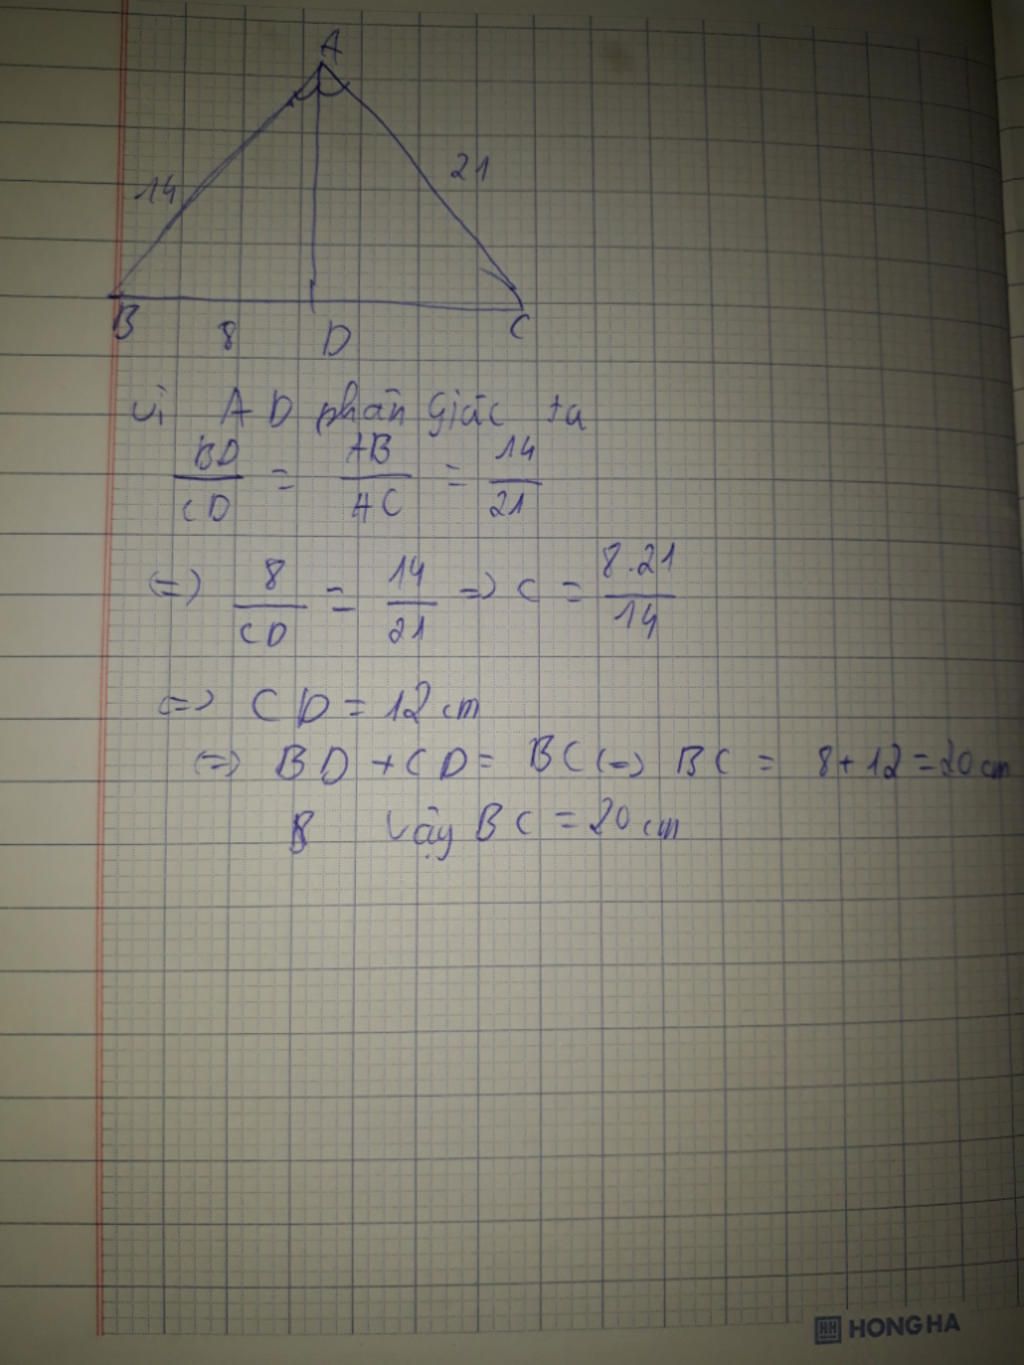 A
14
21
B
8
D
C
Vì AD phân giác ta
BD/CD = AB/AC = 14/21
(=) 8/CD = 14/21 => C = 8.21/14
(=) CD = 12 cm
(=) BD + CD = BC (=) BC = 8+12 = 20 cm
Vậy BC = 20 cm
HH HONG HA